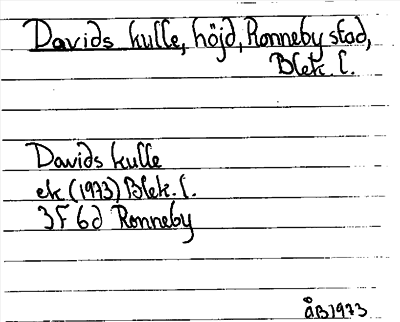 Davids kulle, höjd, Ronneby stad,
Blek. l.
Davids kulle
ek (1973) Blek. l.
3F 6d Ronneby
åB1973